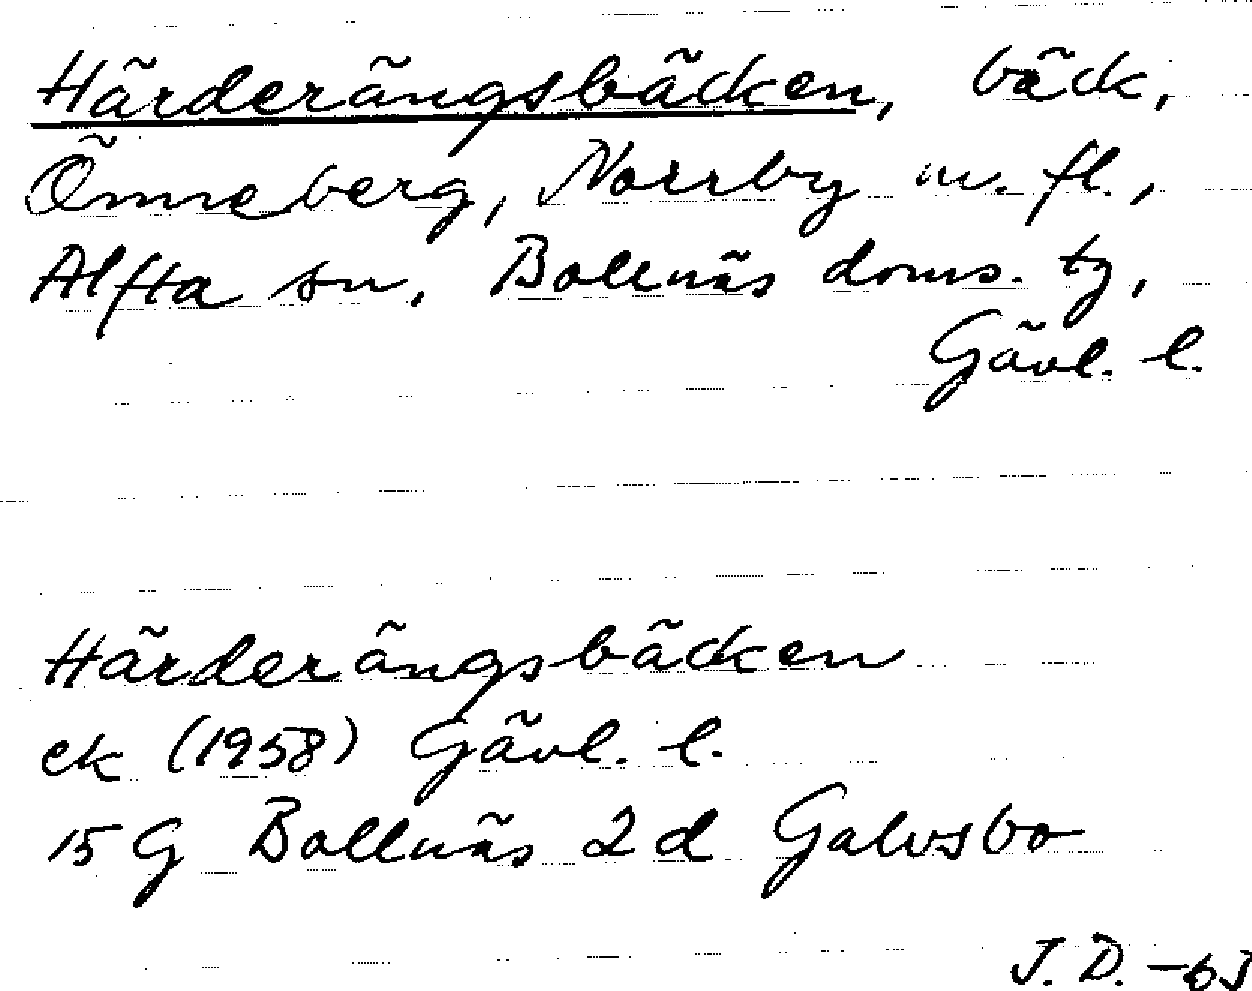 Härderängsbäcken, bäck,
Önneberg, Norrby m. fl.,
Alfta sn, Bollnäs doms. tg,
Gävl. l.
Härderängsbäcken
ek (1958) Gävl. l.
15 G Bollnäs 2 d Galvsbo
J. D. -63